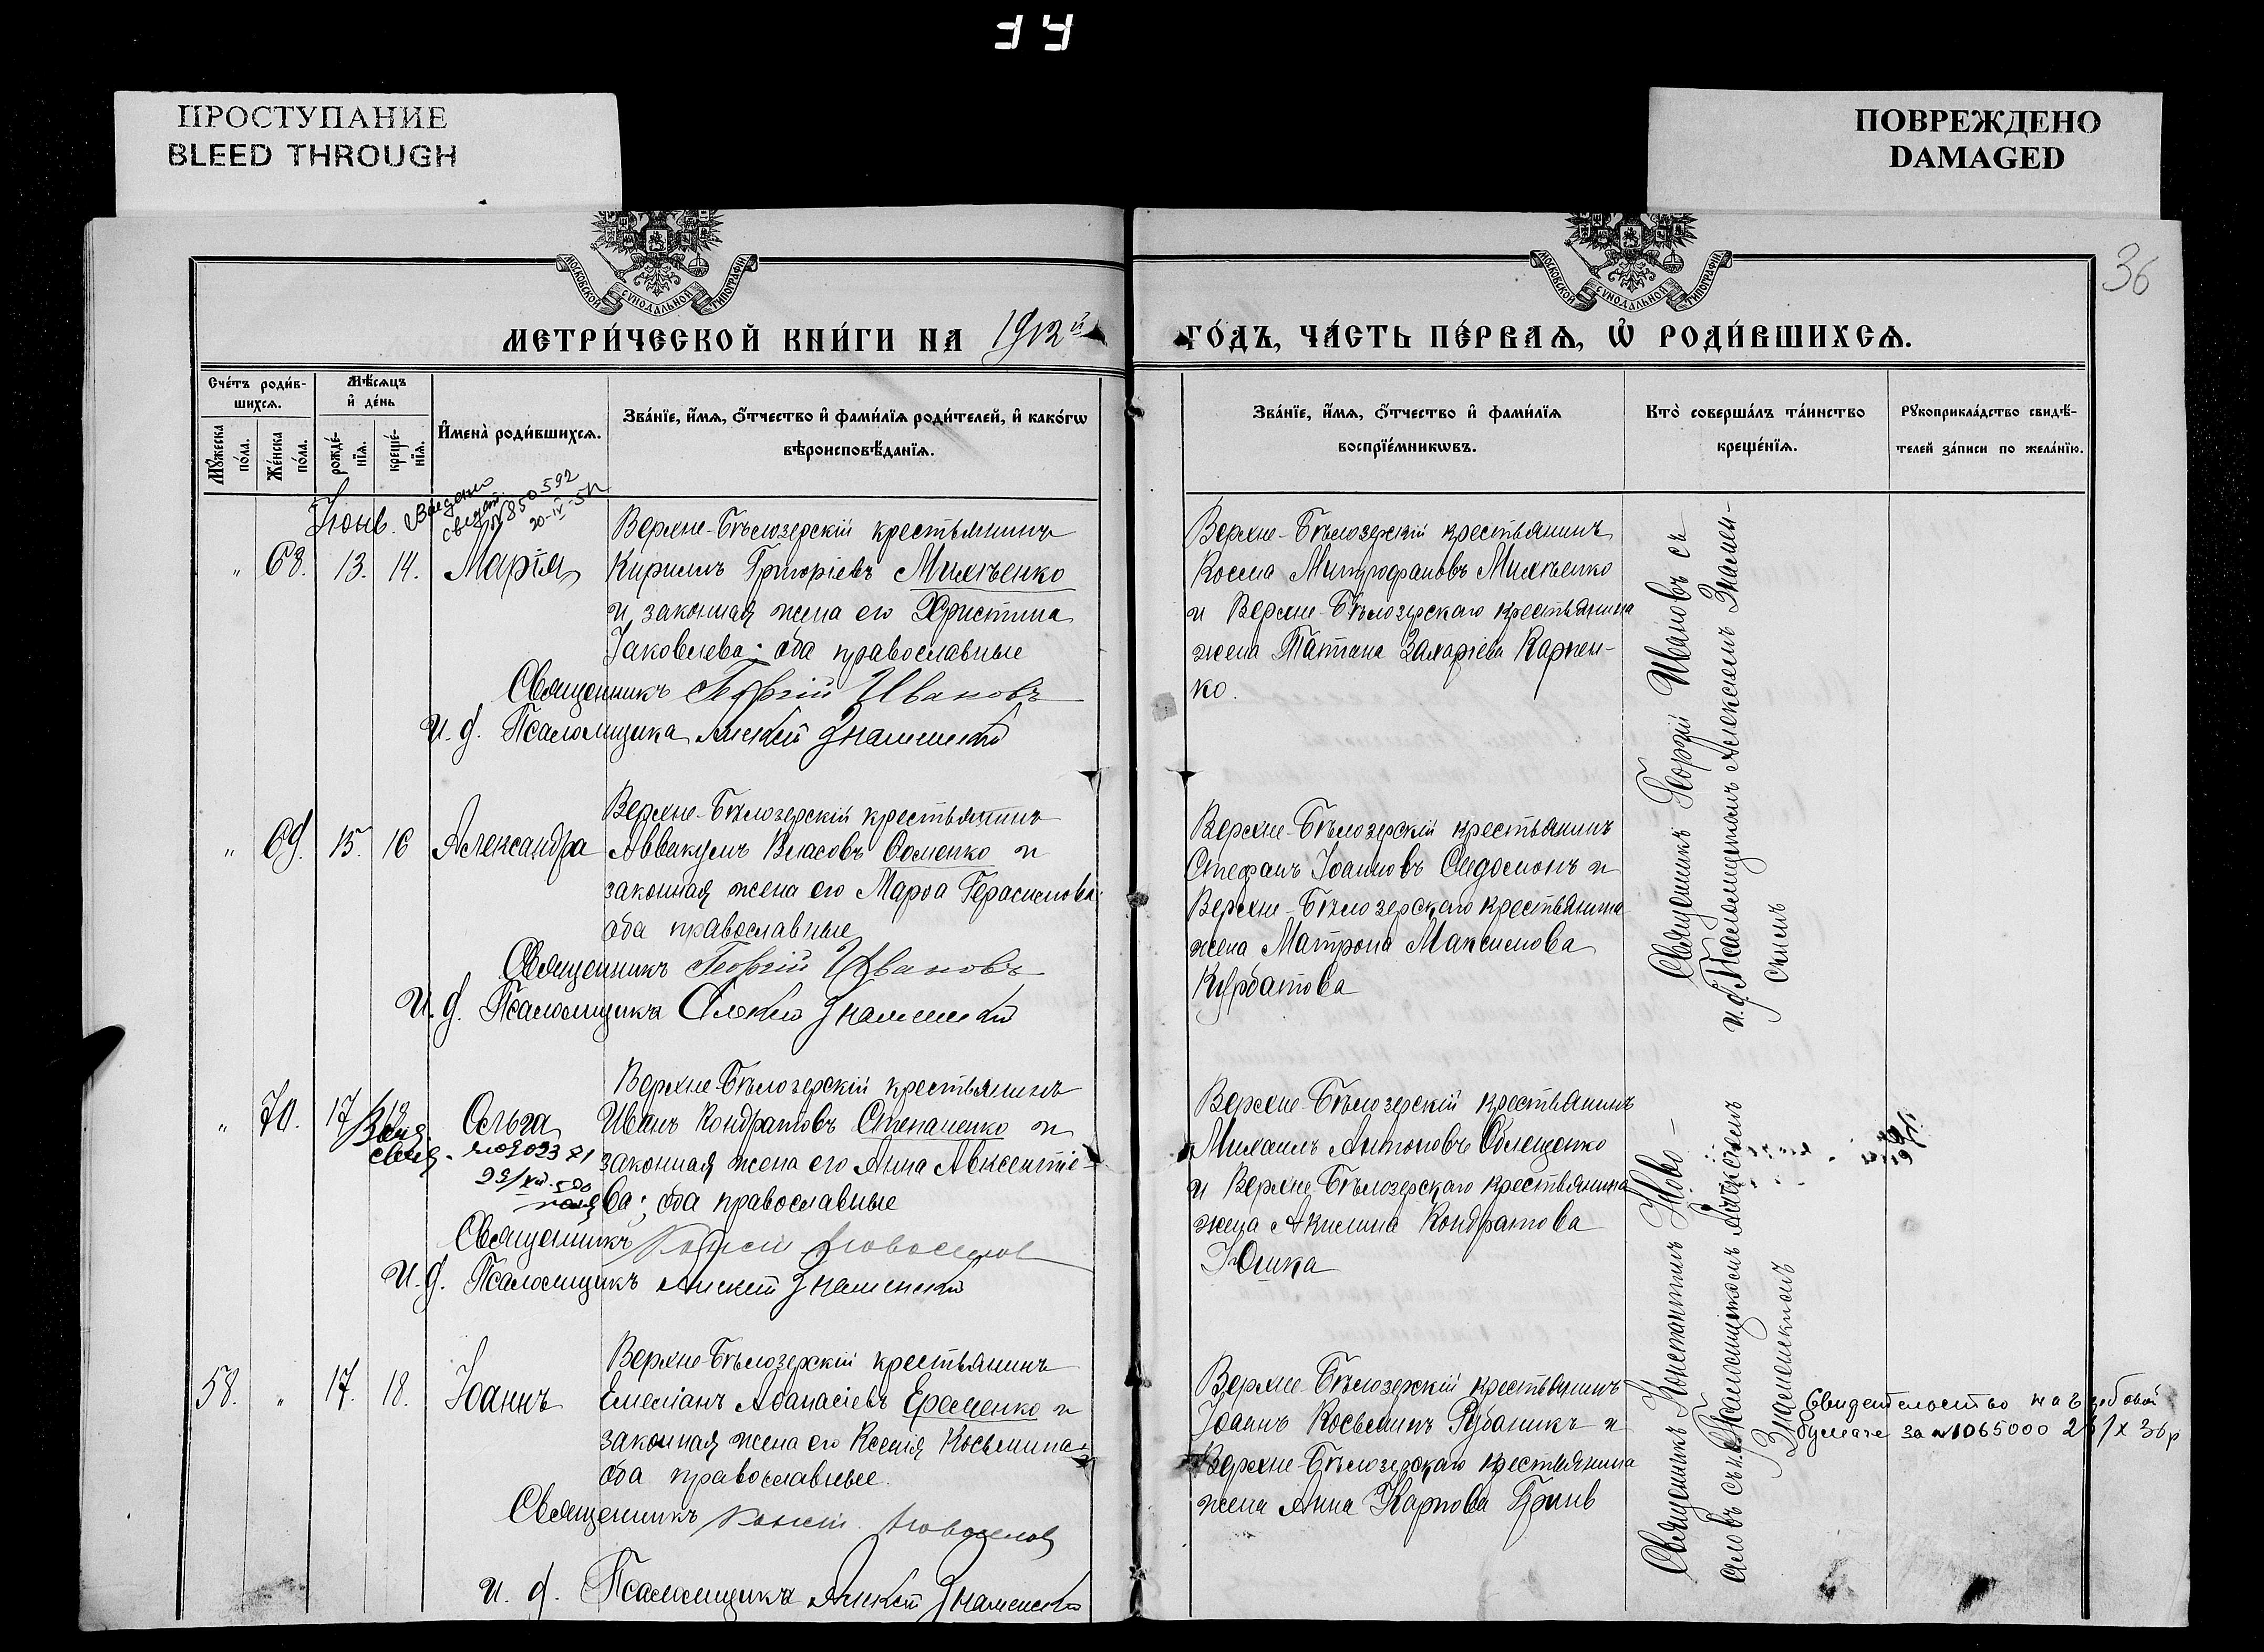 34
ПРОСТУПАНИЕ
BLEED THROUGH
ПОВРЕЖДЕНО
DAMAGED
36
МОСКОВСКОЙ СУНОДАЛЬНОЙ ТИПОГРАФИИ
МОСКОВСКОЙ СУНОДАЛЬНОЙ ТИПОГРАФИИ
МЕТРИ́ЧЕСКОЙ КНИ́ГИ НА 1912й
ГО́ДЪ, ЧА́СТЬ ПЕ́РВАѦ, Ѡ РОДИ́ВШИХСѦ.
Сче́тъ роди́в-
шихсѧ.
Мꙋ́жеска
по́ла.
Же́нска
по́ла.
Мѣ́сѧцъ
и҆ де́нь
рожде́-
нїѧ.
креще́-
нїѧ.
И҆мена̀ роди́вшихсѧ.
Зва́нїе, и҆́мѧ, ѻ҆́тчество и҆ фами́лїѧ роди́телей, и҆ како́гѡ
вѣроисповѣ́данїѧ.
Зва́нїе, и҆́мѧ, ѻ҆́тчество и҆ фами́лїѧ
воспрїе́мникѡвъ.
Кто̀ соверша́лъ та́инство
креще́нїѧ.
Рꙋкоприкла́дство свидѣ́-
телей за́писи по жела́нїю.
Іюнь.
Выдано
свидет.
850592
20-IV-51
" 68. 13. 14. Марія
Верхне-Бѣлозерскій крестьянинъ
Кириллъ Григоріевъ Михѣенко
и законная жена его Христина
Іаковлева; оба православные
Священникъ Георгій Ивановъ
и. д. Псаломщика Алексѣй Знаменскій
Верхне-Бѣлозерскій крестьянинъ
Косма Митрофановъ Михѣенко
и Верхне-Бѣлозерскаго крестьянина
жена Татіана Захаріева Карпен-
ко.
Священникъ Георгій Ивановъ съ
и. д. Псаломщикомъ Алексѣемъ Знамен-
скимъ
" 69. 15. 16 Александра
Верхне-Бѣлозерскій крестьянинъ
Аввакумъ Власовъ Ѳоменко и
законная жена его Марѳа Герасимова;
оба православные
Священникъ Георгій Ивановъ
и. д. Псаломщика Алексѣй Знаменскій
Верхне-Бѣлозерскій крестьянинъ
Стефанъ Іоанновъ и
Верхне-Бѣлозерскаго крестьянина
жена Матрона Максимова
Курбатова
" 70. 17 18 Ольга
Выд.
свид.
Верхне-Бѣлозерскій крестьянинъ
Иванъ Кондратовъ Степаненко и
законная жена его Анна Авксентіе-
ва; оба православные
Священникъ Новоселов
и. д. Псаломщикъ Алексѣй Знаменскій
Верхне-Бѣлозерскій крестьянинъ
Михаилъ Антоновъ
и Верхне-Бѣлозерскаго крестьянина
жена Акилина Кондратова
Юшка
Священникъ Константинъ Ново-
селовъ съ и. д. Псаломщикомъ Алексѣемъ
Знаменскимъ
58. " 17. 18. Іоаннъ
Верхне-Бѣлозерскій крестьянинъ
Емеліанъ Аѳанасіевъ Еременко и
законная жена его Ксенія Косьмина;
оба православные.
Священникъ Новоселов
и. д. Псаломщика Алексѣй Знаменскій
Верхне-Бѣлозерскій крестьянинъ
Іоаннъ Косьминъ Рубаникъ и
Верхне-Бѣлозерскаго крестьянина
жена Анна Карпова Гринь
Свидетельство на гербовой
бумаге за №1065000 26/X 36р